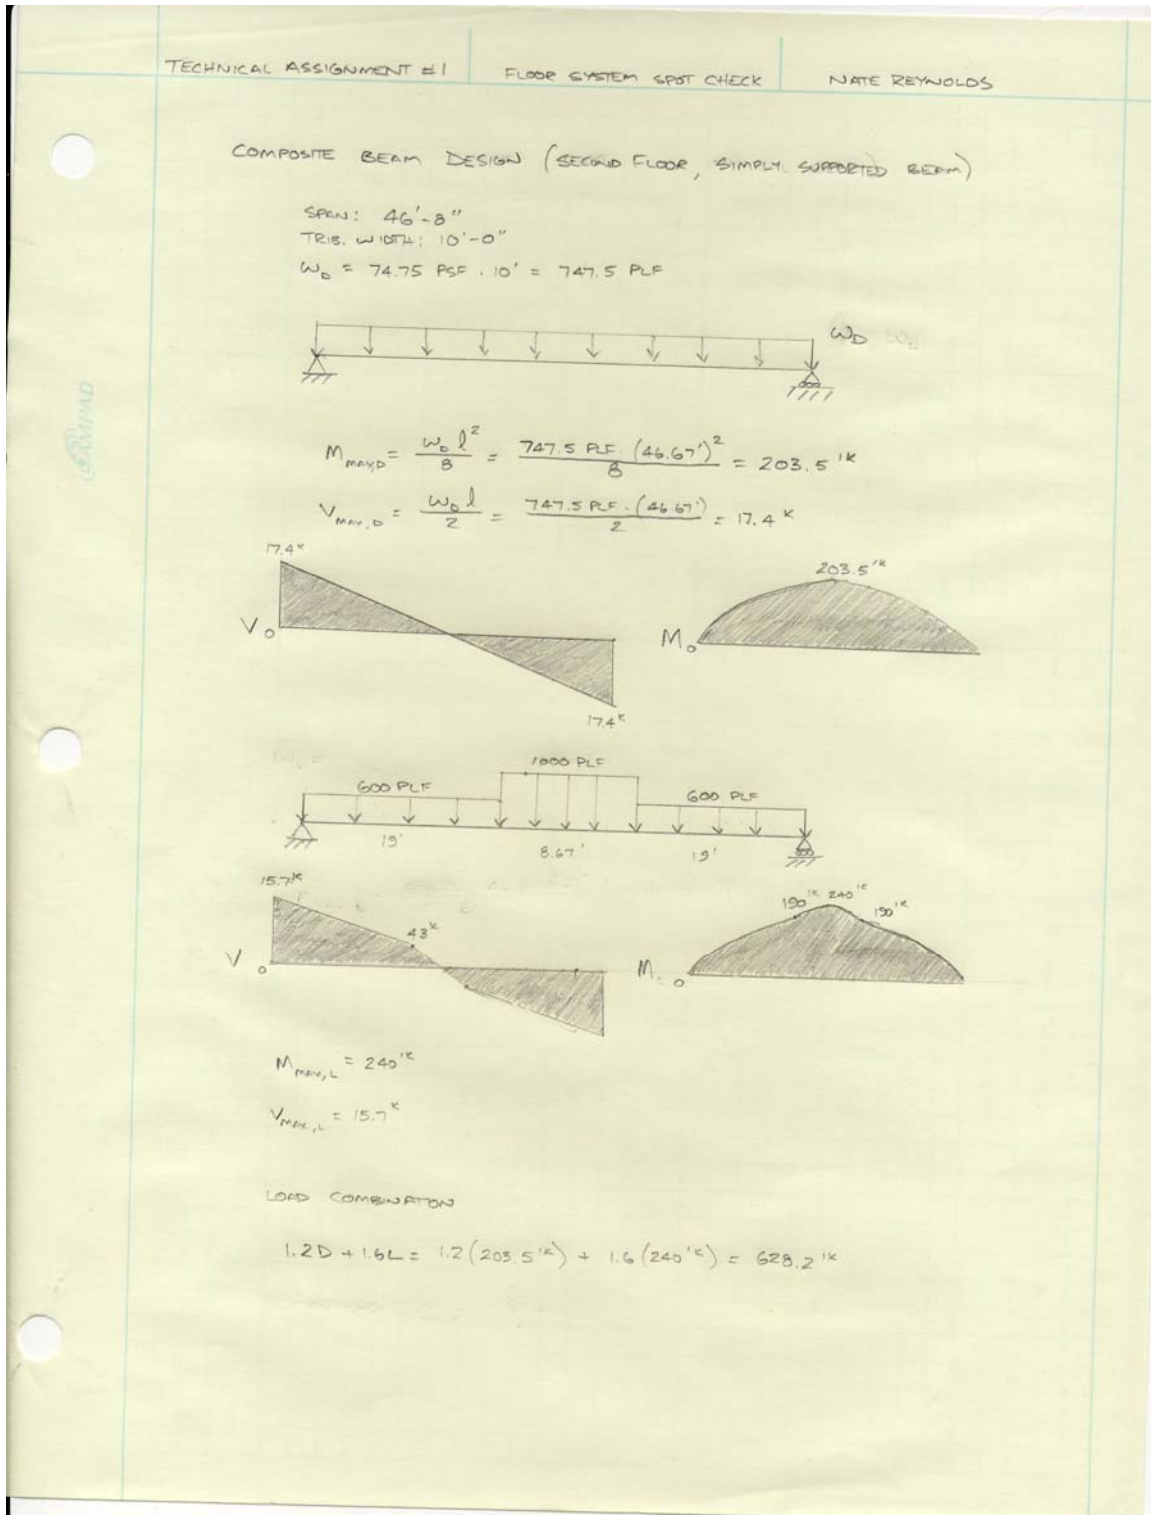 TECHNICAL ASSIGNMENT #1
FLOOR SYSTEM SPOT CHECK
NATE REYNOLDS
COMPOSITE BEAM DESIGN (SECOND FLOOR, SIMPLY SUPPORTED BEAM)
SPAN: 46'-8"
TRIB. WIDTH: 10'-0"
ω_D = 74.75 PSF · 10' = 747.5 PLF
ω_D
AMPAD
M_MAX,D = ω_D l²/8 = 747.5 PLF · (46.67')²/8 = 203.5 'K
V_MAX,D = ω_D l/2 = 747.5 PLF · (46.67')/2 = 17.4 K
17.4 K
203.5 'K
V 0
M 0
17.4 K
1000 PLF
600 PLF
600 PLF
19'
8.67'
19'
15.7 K
190 'K 240 'K 190 'K
43 K
V 0
M 0
M_MAX,L = 240 'K
V_MAX,L = 15.7 K
LOAD COMBINATION
1.2D + 1.6L = 1.2(203.5 'K) + 1.6(240 'K) = 628.2 'K